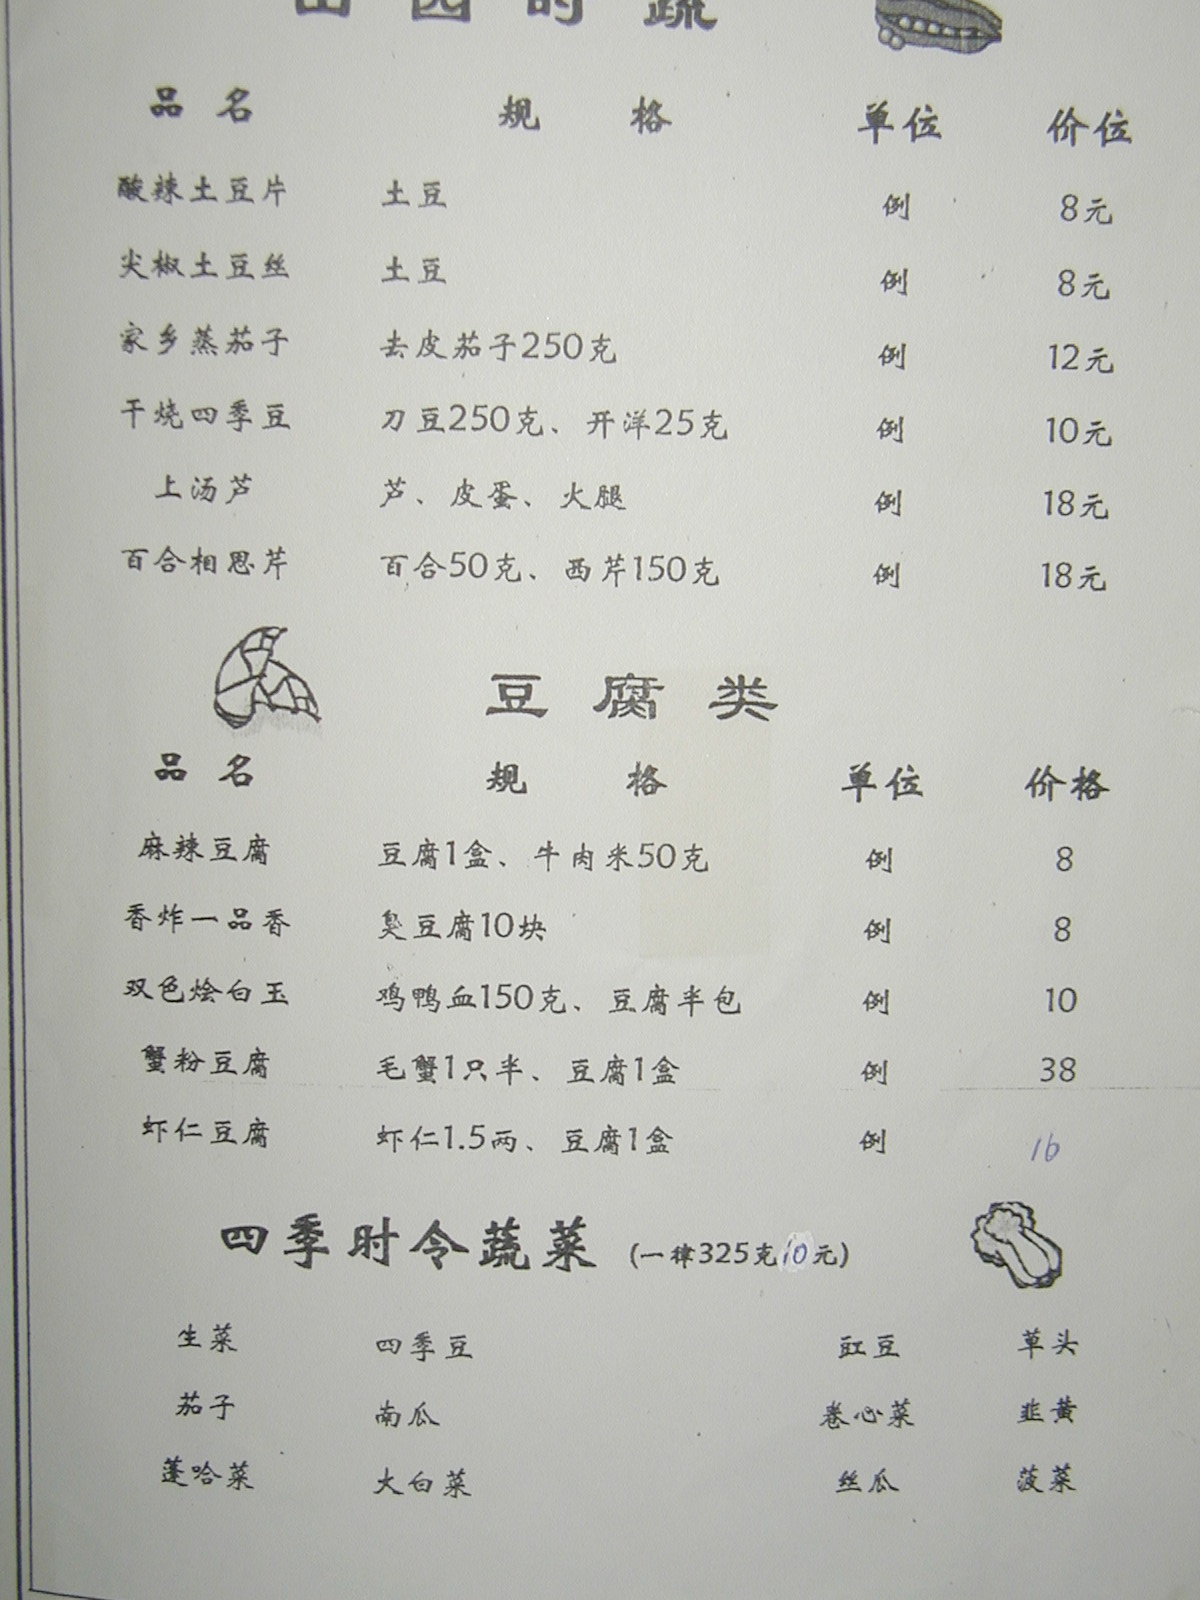 田园时蔬
品名 规格 单位 价位
酸辣土豆片 土豆 例 8元
尖椒土豆丝 土豆 例 8元
家乡蒸茄子 去皮茄子250克 例 12元
干烧四季豆 刀豆250克、开洋25克 例 10元
上汤芦 芦、皮蛋、火腿 例 18元
百合相思芹 百合50克、西芹150克 例 18元
豆腐类
品名 规格 单位 价格
麻辣豆腐 豆腐1盒、牛肉米50克 例 8
香炸一品香 臭豆腐10块 例 8
双色烩白玉 鸡鸭血150克、豆腐半包 例 10
蟹粉豆腐 毛蟹1只半、豆腐1盒 例 38
虾仁豆腐 虾仁1.5两、豆腐1盒 例 16
四季时令蔬菜 (一律325克10元)
生菜 四季豆 豇豆 草头
茄子 南瓜 卷心菜 韭黄
蓬哈菜 大白菜 丝瓜 菠菜